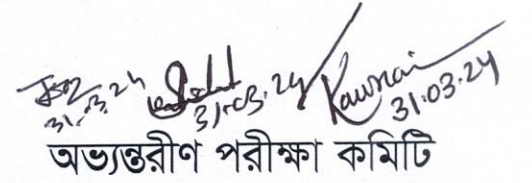 31.03.24 31.03.24 31.03.24
অভ্যন্তরীণ পরীক্ষা কমিটি